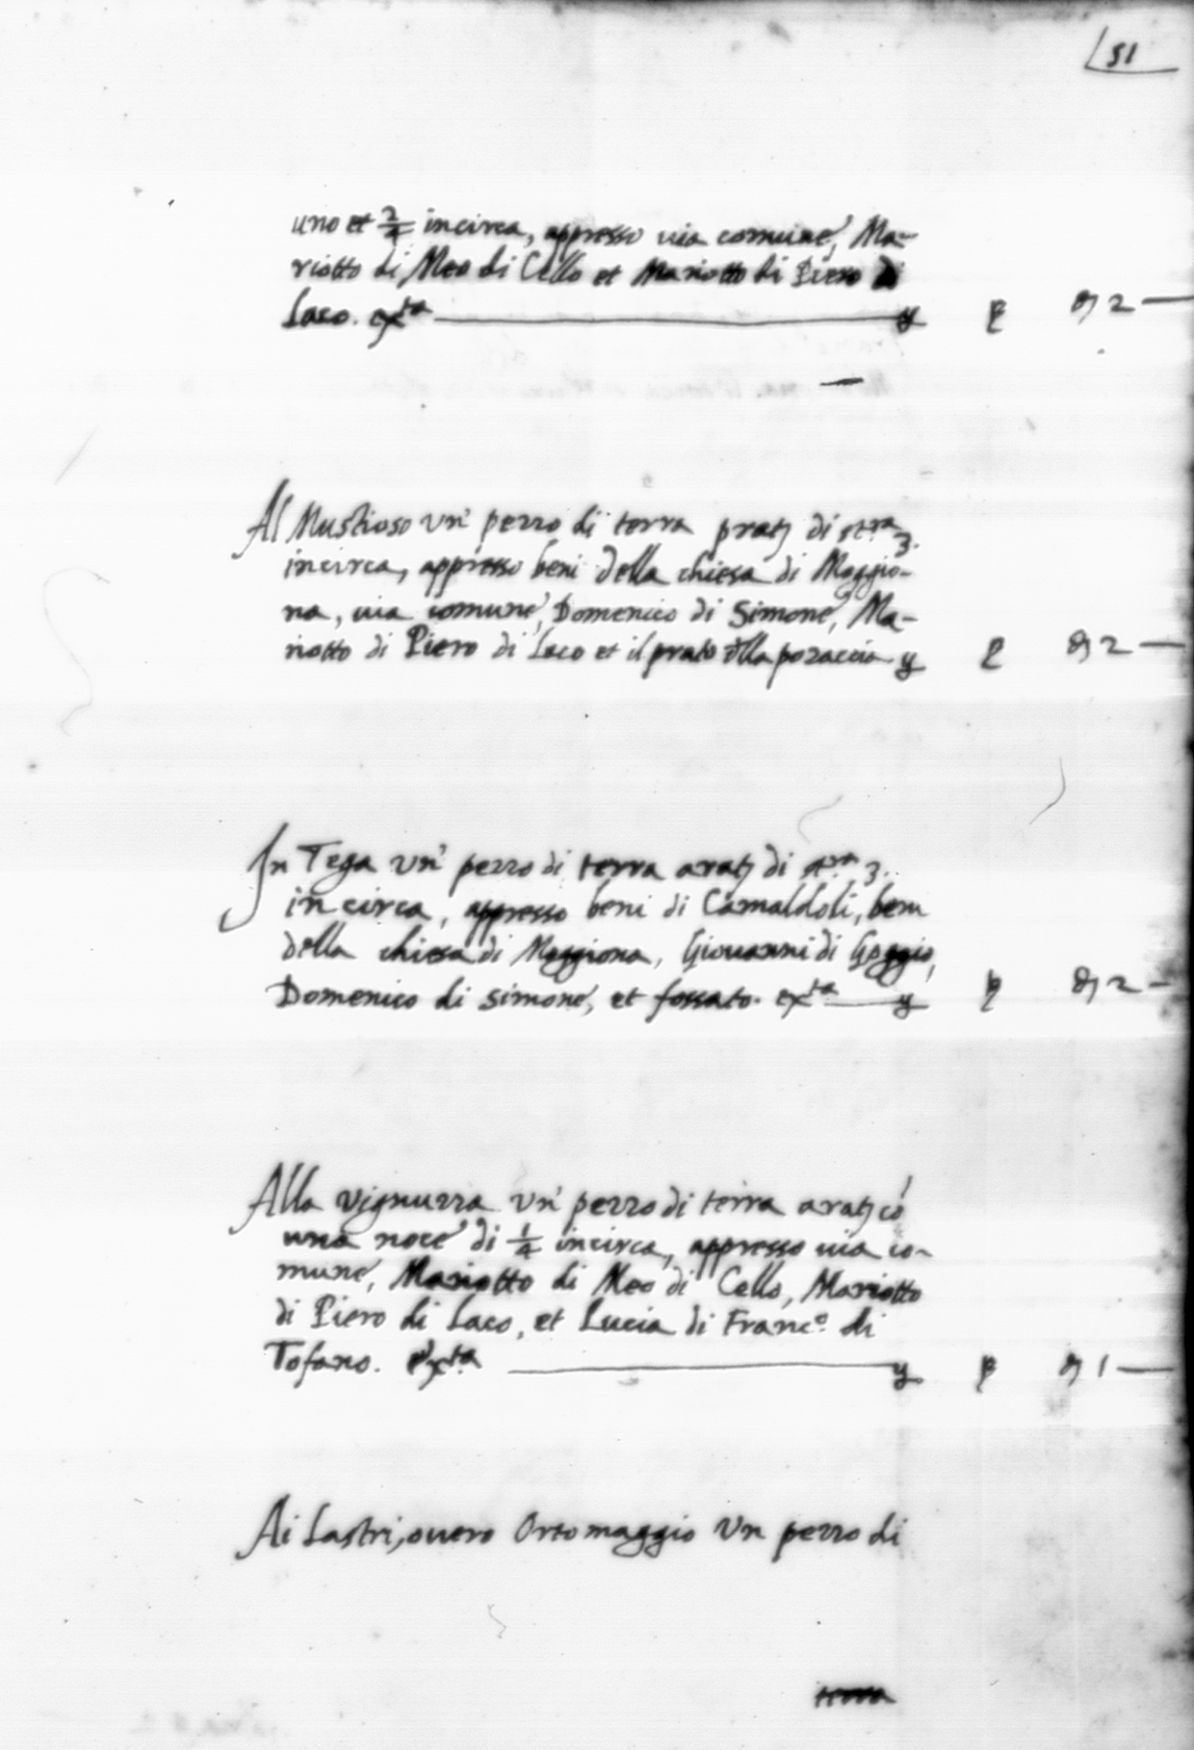 51
uno et 2/4 incirca, appresso via comune, Ma-
riotto di Meo di Cello et Mariotto di Piero di
Laco. exta y 2
Al Muschioso un' pezzo di terra prat di stra 3.
incirca, appresso beni della chiesa di Moggio-
na, via comune, Domenico di Simone, Ma-
riotto di Piero di Laco et il prato dlla pozaccia y 2
In Tega un' pezzo di terra arat di stra 3.
incirca, appresso beni di Camaldoli, beni
della chiesa di Moggiona, Giovanni di Goggio,
Domenico di Simone, et fossato. exta y 2
Alla vignuzza un' pezzo di terra arat cō
una noce di 1/4 incirca, appresso via co-
mune, Mariotto di Meo di Cello, Mariotto
di Piero di Laco, et Lucia di Franc.o di
Tofano. exta y 1
Ai Lastri, overo Ortomaggio Un pezzo di
terra